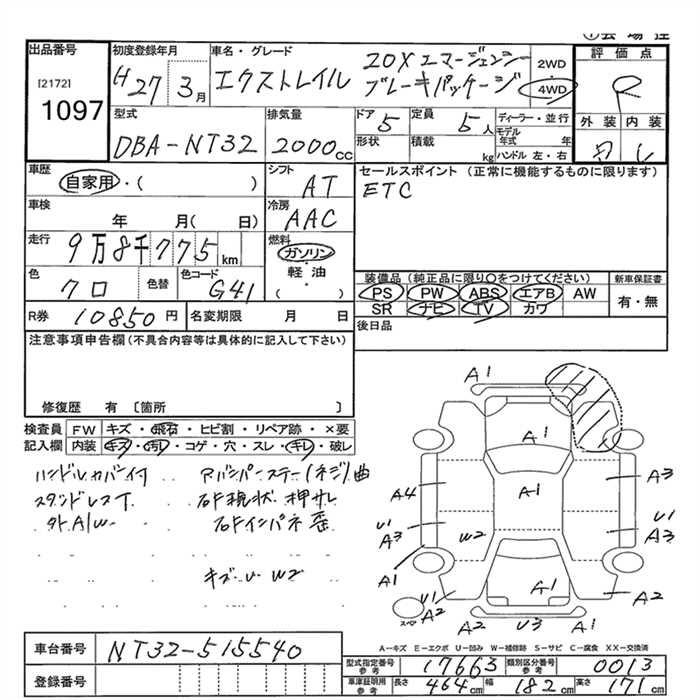 出品番号
[2172]
1097
初度登録年月
H27 3月
車名・グレード
エクストレイル
20X エマージェンシー
ブレーキパッケージ
2WD
4WD
評価点
R
外装 内装
型式
DBA-NT32
排気量
2000cc
ドア 5
定員 5人
形状
積載 kg
ディーラー・並行
モデル年式 年
ハンドル 左・右
車歴
自家用・( )
シフト
AT
セールスポイント (正常に機能するものに限ります)
ETC
車検
年 月( 日)
冷房
AAC
走行
9万8千775km
燃料
ガソリン
軽・油
( )
色
クロ
色替
色コード
G41
装備品(純正品に限り○をつけてください)
PS PW ABS エアB AW
SR ナビ TV カワ
新車保証書
有・無
R券 10850円
名変期限 月 日
後日品
注意事項申告欄(不具合内容等は具体的に記入して下さい)
修復歴 有 〔箇所 〕
検査員記入欄
FW キズ・飛石・ヒビ割・リペア跡・×要
内装 キズ・汚れ・コゲ・穴・スレ・キレ・破レ
ハンドルカバー付
スタッドレスT
社外A/W
Rバンパーステー(ネジ)曲
右F現状 押サレ
右Fインパネ歪
キズ・U W2
A1
A1
A1
A4
A3
U1
A3
W2
U1
A3
A1
A1
U1
A2
A2
A2
U3
A1
スペア
A-キズ E-エクボ U-凹み W-補修跡 S-サビ C-腐食 XX-交換済
車台番号
NT32-515540
登録番号
型式指定番号 参考 17663
類別区分番号 参考 0013
車庫証明用 参考 長さ 464cm 幅 182cm 高さ 171cm